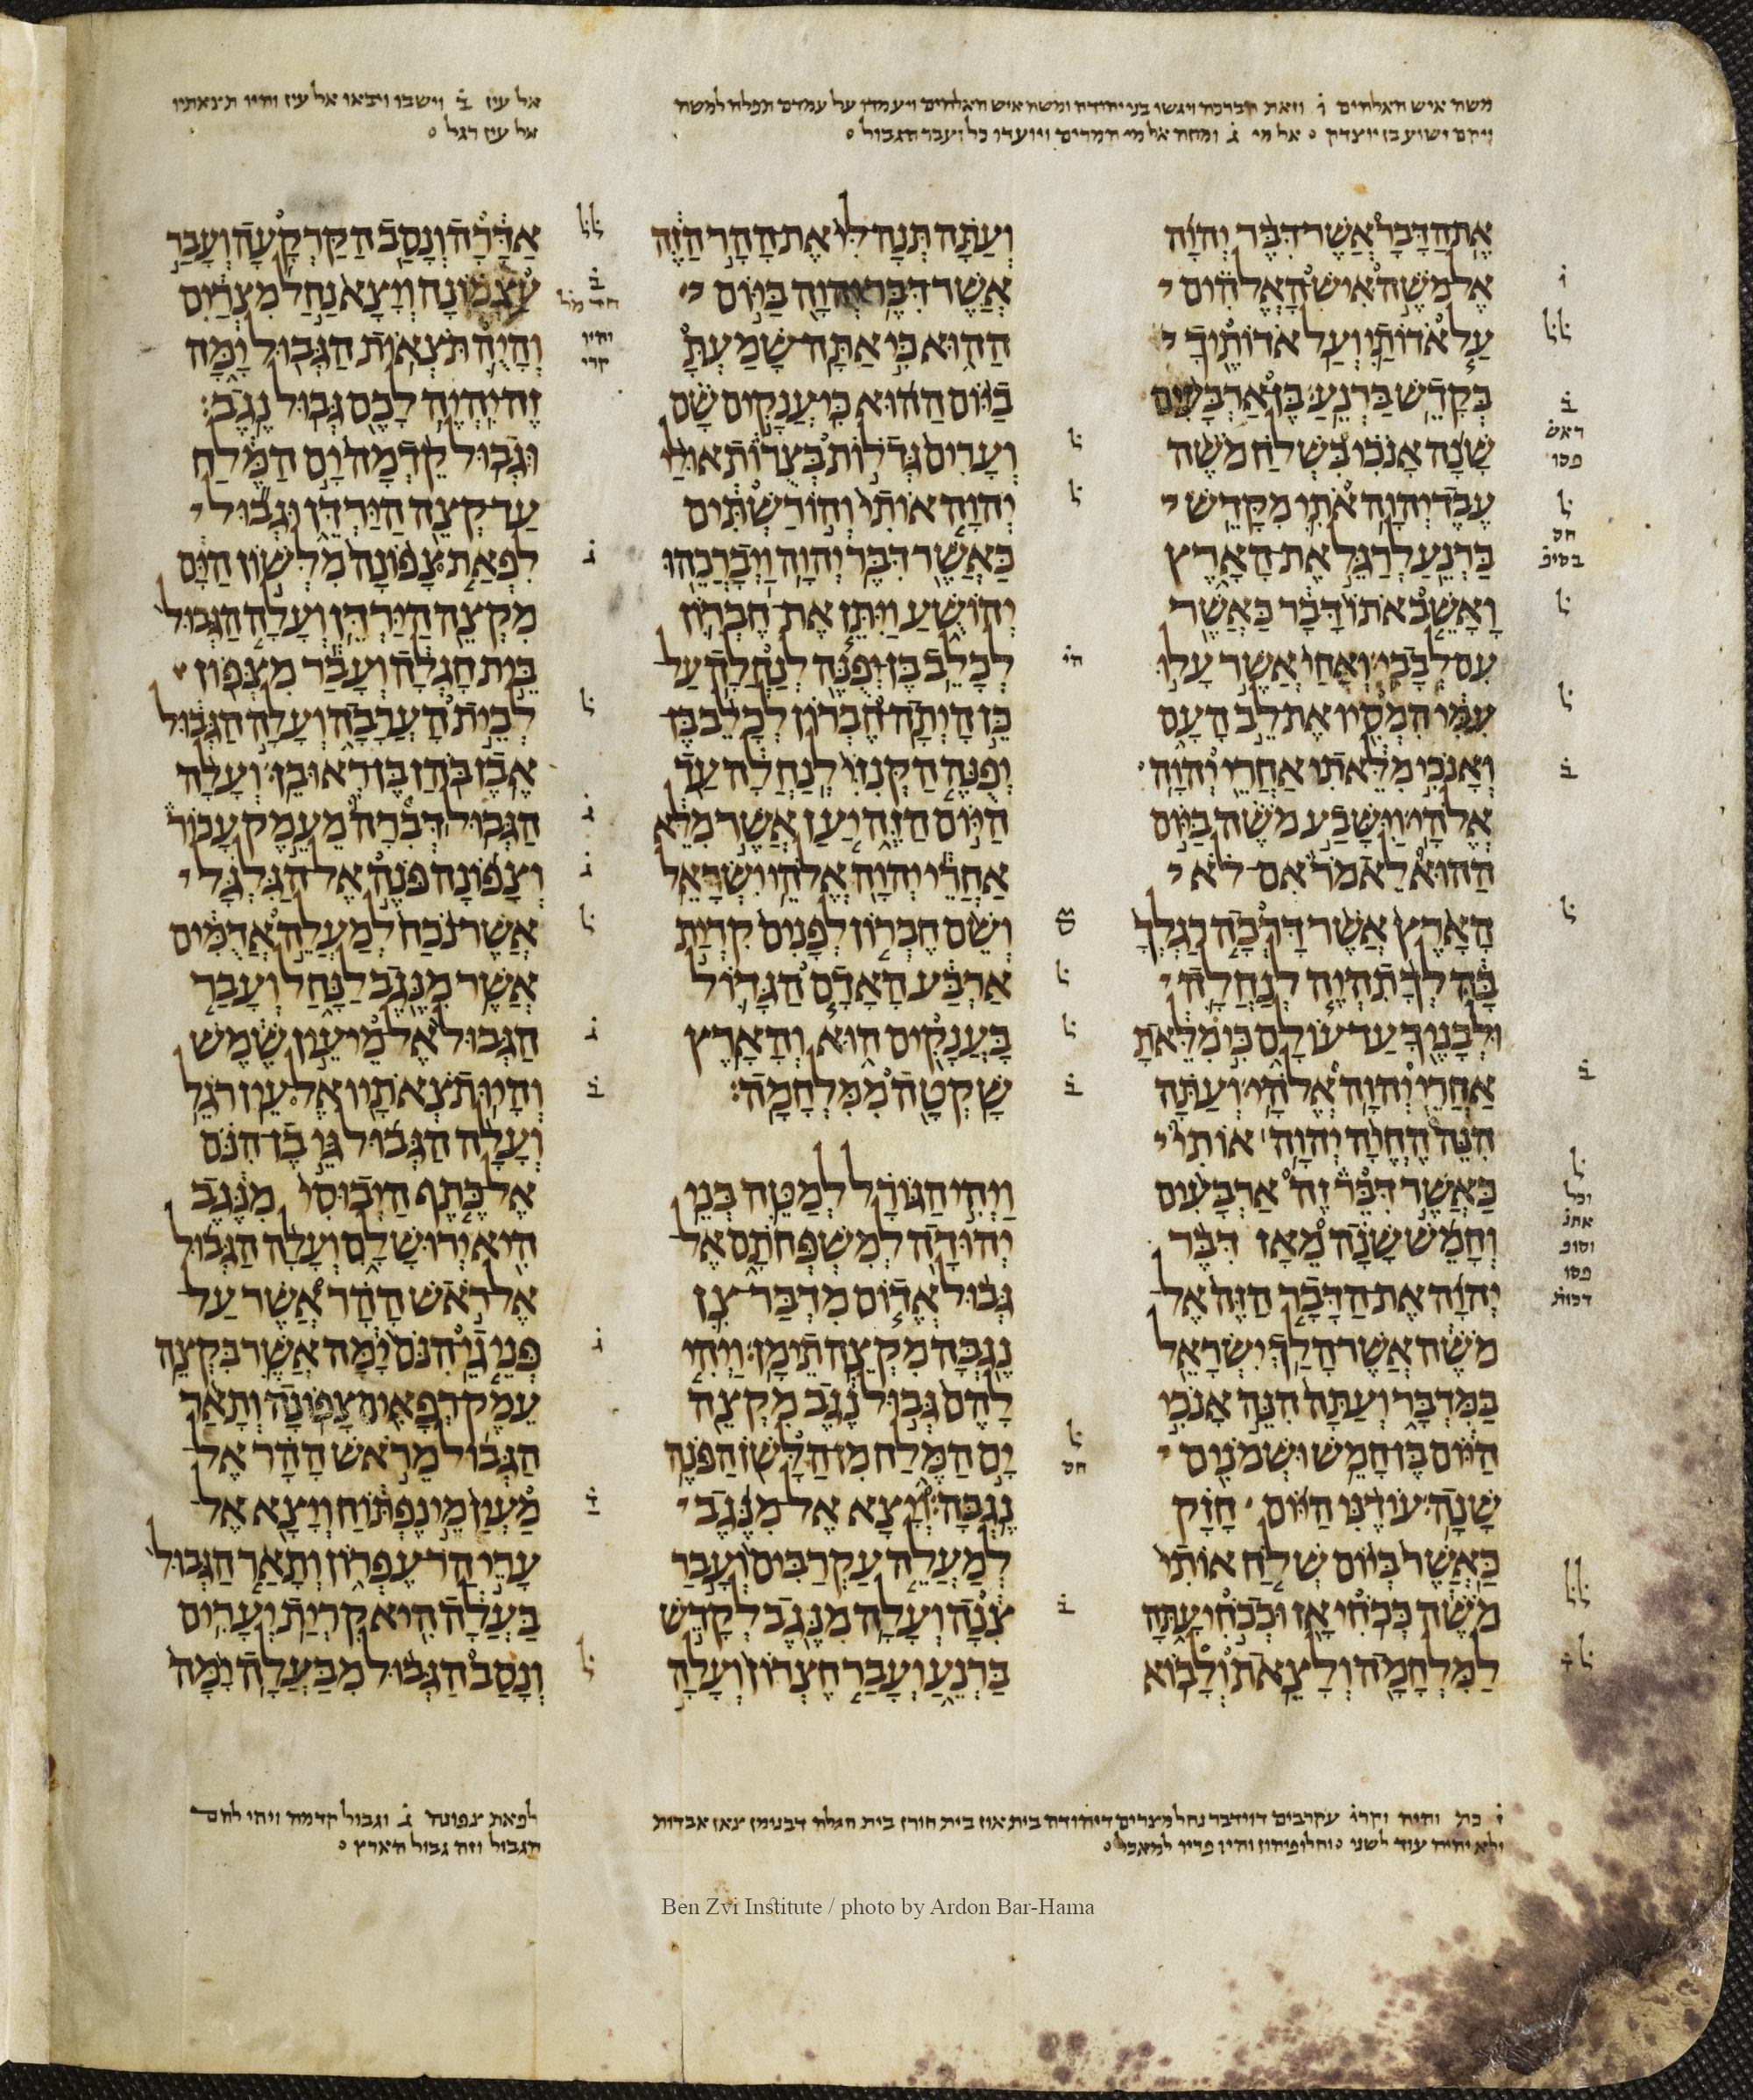 משה איש האלהים ו̇ וזאת הברכה ויגשו בני יהודה ומשה איש האלהים ויעמדו על עמדם תפלה למשה
ויקם ישוע בן יוצדק ◦ אל מי ג̇ ומחה אל מי המרים ויועדו כל ועבר הגבול ◦
אל עין ב̇ וישבו ויבאו אל עין והיו תצאתיו
אל עין רגל ◦
את הדבר אשר דבר יהוה
אל משה איש האלהים
על אדותי ועל אדותיך
בקדש ברנע בן ארבעים
שנה אנכי בשלח משה
עבד יהוה אתי מקדש
ברנע לרגל את הארץ
ואשב אתו דבר כאשר
עם לבבי ואחי אשר עלו
עמי המסיו את לב העם
ואנכי מלאתי אחרי יהוה
אלהי וישבע משה ביום
ההוא לאמר אם לא
הארץ אשר דרכה רגלך
בה לך תהיה לנחלה
ולבניך עד עולם כי מלאת
אחרי יהוה אלהי ועתה
הנה החיה יהוה אותי
כאשר דבר זה ארבעים
וחמש שנה מאז דבר
יהוה את הדבר הזה אל
משה אשר הלך ישראל
במדבר ועתה הנה אנכי
היום בן חמש ושמנים
שנה עודני היום חזק
כאשר ביום שלח אותי
משה ככחי אז וככחי עתה
למלחמה ולצאת ולבוא
ועתה תנה לי את ההר הזה
אשר דבר יהוה ביום
ההוא כי אתה שמעת
ביום ההוא כי ענקים שם
וערים גדלות בצרות אולי
יהוה אותי והורשתים
כאשר דבר יהוה ויברכהו
יהושע ויתן את חברון
לכלב בן יפנה לנחלה על
כן היתה חברון לכלב בן
יפנה הקנזי לנחלה עד
היום הזה יען אשר מלא
אחרי יהוה אלהי ישראל
ושם חברון לפנים קרית
ארבע האדם הגדול
בענקים הוא והארץ
שקטה ממלחמה
ויהי הגורל למטה בני
יהודה למשפחתם אל
גבול אדום מדבר צן
נגבה מקצה תימן ויהי
להם גבול נגב מקצה
ים המלח מן הלשן הפנה
נגבה ויצא אל מנגב
למעלה עקרבים ועבר
צנה ועלה מנגב לקדש
ברנע ועבר חצרון ועלה
אדרה ונסב הקרקעה ועבר
עצמונה ויצא נחל מצרים
והיה תצאות הגבול ימה
זה יהיה לכם גבול נגב
וגבול קדמה ים המלח
עד קצה הירדן וגבול
לפאת צפונה מלשון הים
מקצה הירדן ועלה הגבול
בית חגלה ועבר מצפון
לבית הערבה ועלה הגבול
אבן בהן בן ראובן ועלה
הגבול דברה מעמק עכור
וצפונה פנה אל הגלגל
אשר נכח למעלה אדמים
אשר מנגב לנחל ועבר
הגבול אל מי עין שמש
והיו תצאתיו אל עין רגל
ועלה הגבול גי בן הנם
אל כתף היבוסי מנגב
היא ירושלם ועלה הגבול
אל ראש ההר אשר על
פני גי הנם ימה אשר בקצה
עמק רפאים צפונה ותאר
הגבול מראש ההר אל
מעין מי נפתוח ויצא אל
ערי הר עפרון ותאר הגבול
בעלה היא קרית יערים
ונסב הגבול מבעלה ימה
ז̇ כת והיה וקרו̇ עקרבים דוידבר נחל מצרים דיהודה בית און בית חורן בית חגלה דבנימן צאן אבדות
ולא יהיה עוד לשני ◦ וחלופיהון והיו פריו למאכל ◦
לפאת צפונה ג̇ וגבול קדמה ויהי להם
הגבול וזה גבול הארץ ◦
Ben Zvi Institute / photo by Ardon Bar-Hama